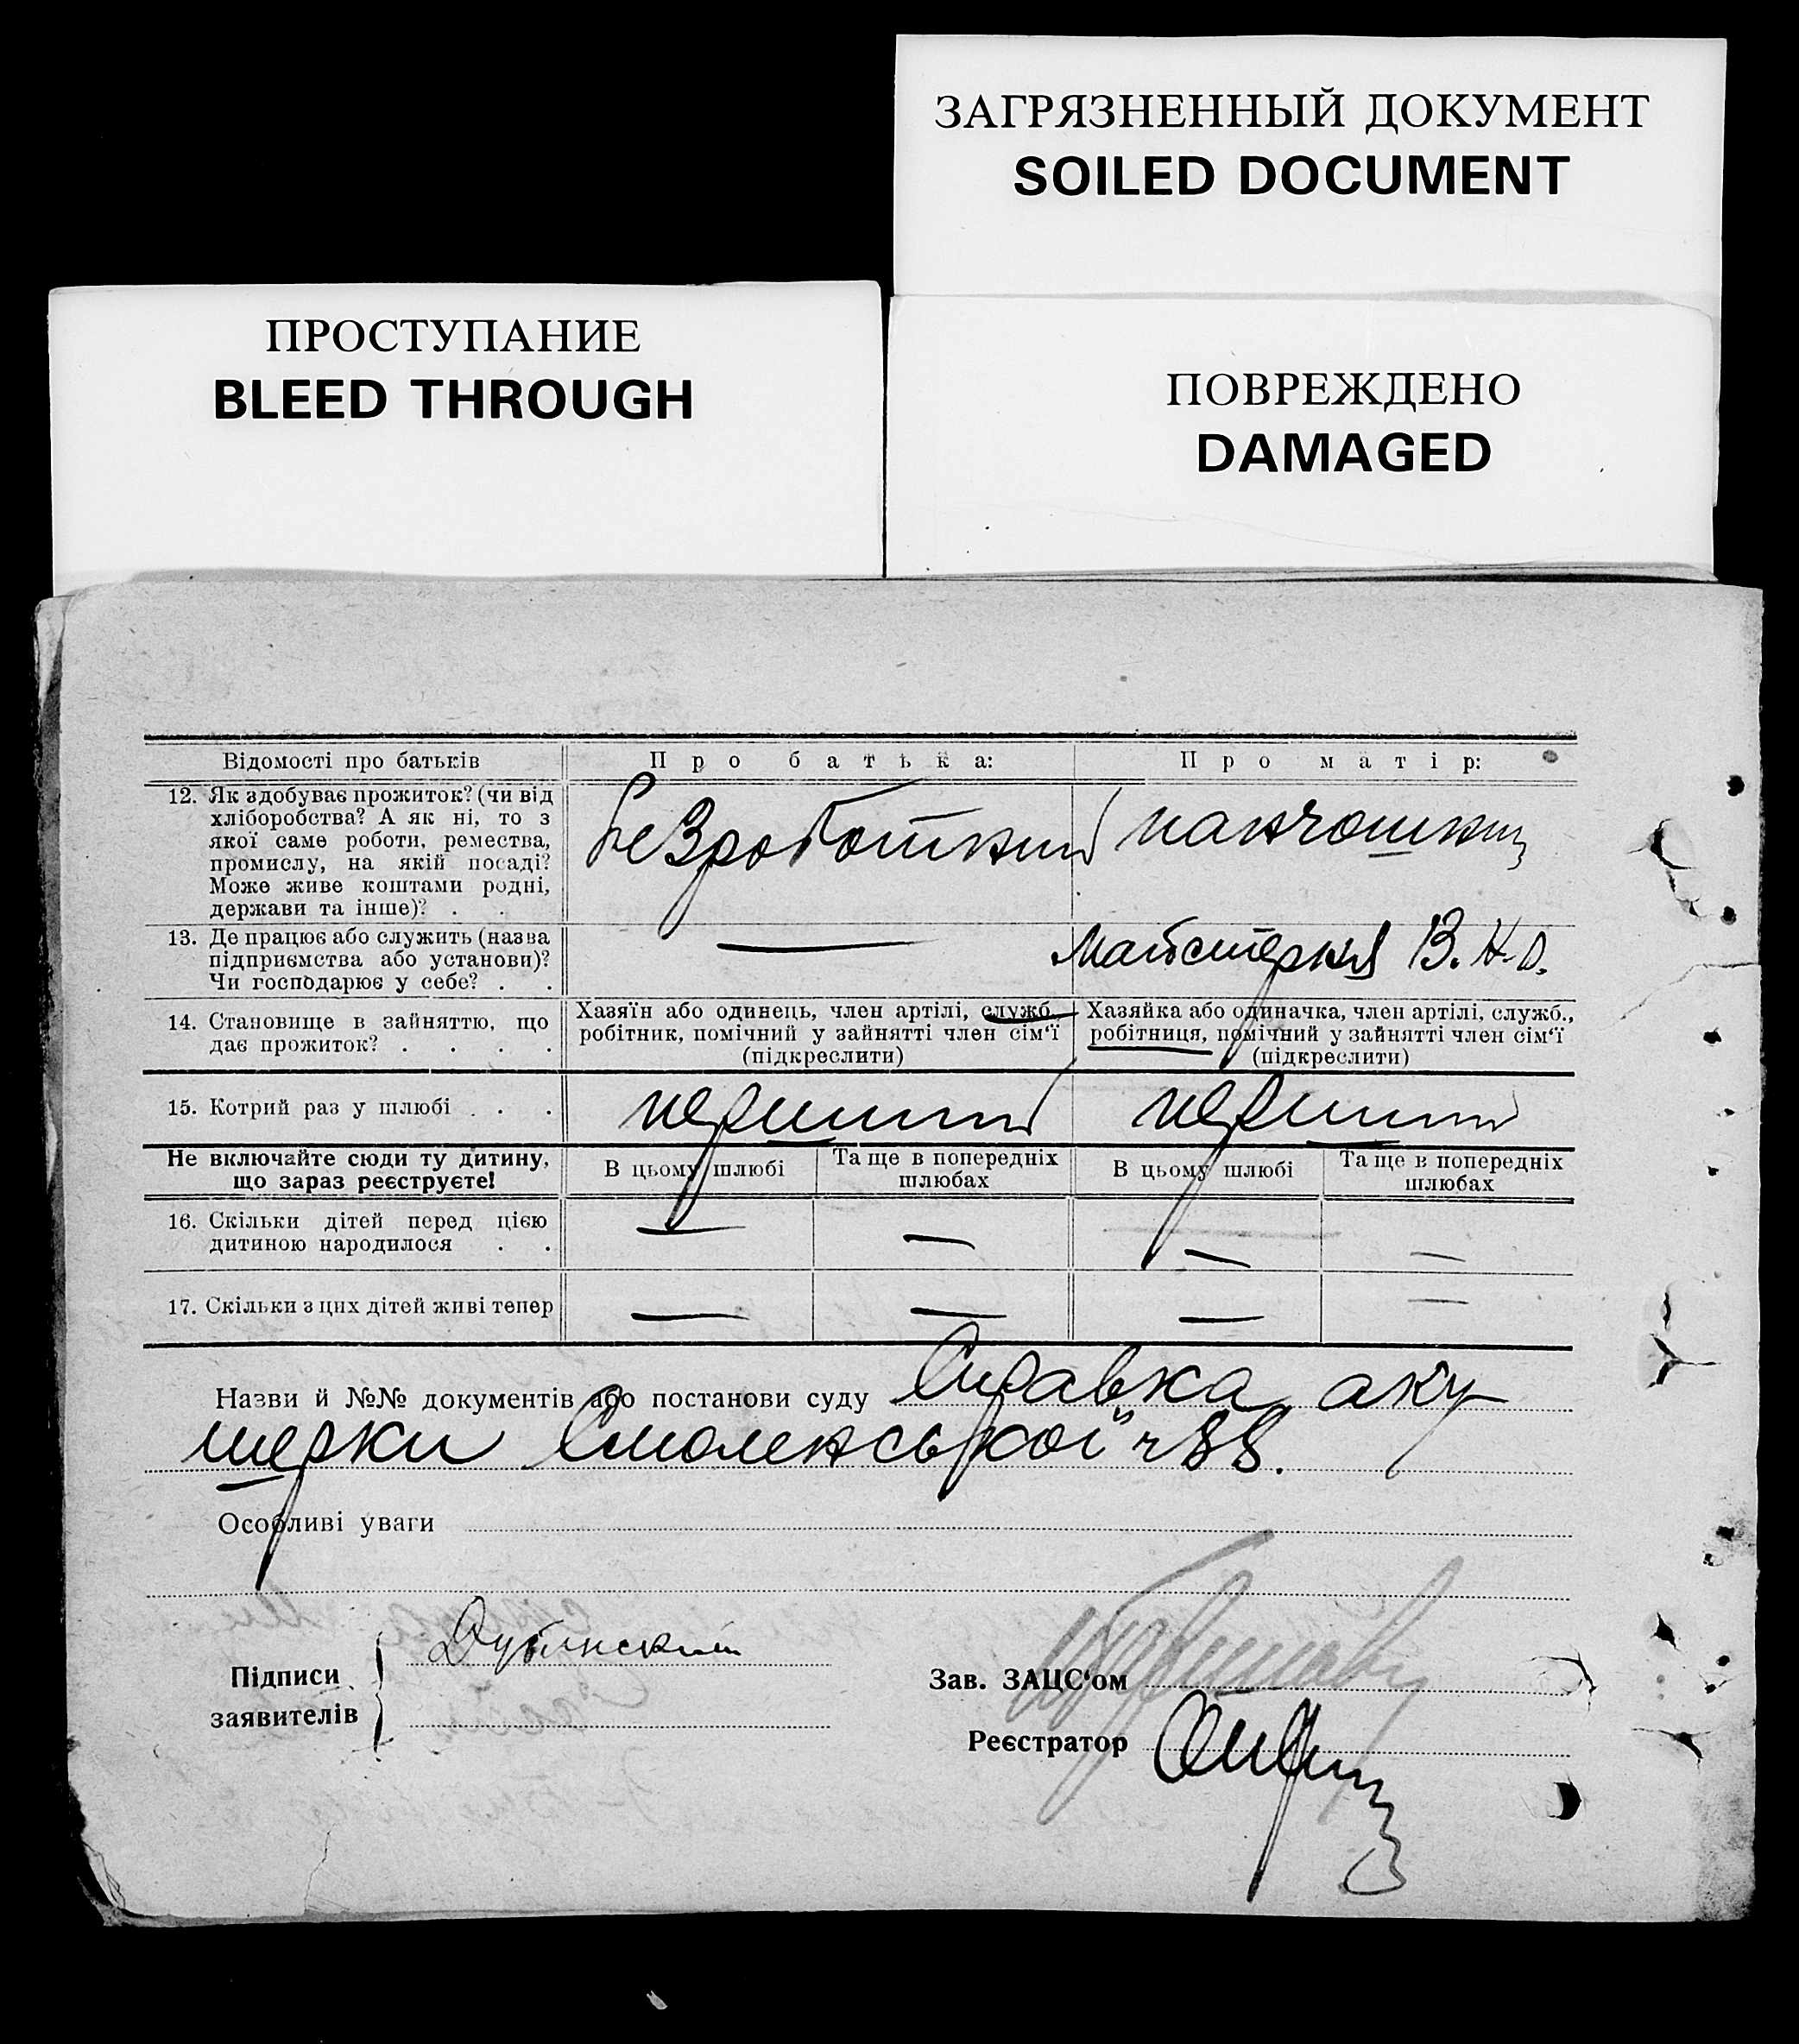 ЗАГРЯЗНЕННЫЙ ДОКУМЕНТ
SOILED DOCUMENT
ПРОСТУПАНИЕ
BLEED THROUGH
ПОВРЕЖДЕНО
DAMAGED
Відомості про батьків Про батька: Про матір:
12. Як здобуває прожиток? (чи від
хліборобства? А як ні, то з
якої саме роботи, ремества,
промислу, на якій посаді?
Може живе коштами родні,
держави та інше)? . .
Безроботний
13. Де працює або служить (назва
підприємства або установи)?
Чи господарює у себе? . .
— Майстерня В.
14. Становище в зайняттю, що
дає прожиток? . . . .
Хазяїн або одинець, член артілі, служб.,
робітник, помічний у зайнятті член сім‘ї
(підкреслити)
Хазяйка або одиначка, член артілі, служб.,
робітниця, помічний у зайнятті член сім‘ї
(підкреслити)
15. Котрий раз у шлюбі . . . перший перший
Не включайте сюди ту дитину,
що зараз реєструєте!
В цьому шлюбі
Та ще в попередніх
шлюбах
В цьому шлюбі
Та ще в попередніх
шлюбах
16. Скільки дітей перед цією
дитиною народилося . .
— — — —
17. Скільки з цих дітей живі тепер — — — —
Назви й №№ документів або постанови суду Справка аку
шерки Смоленської ч 88.
Особливі уваги
Дубинский
Підписи
заявителів
Зав. ЗАЦС‘ом
Реєстратор